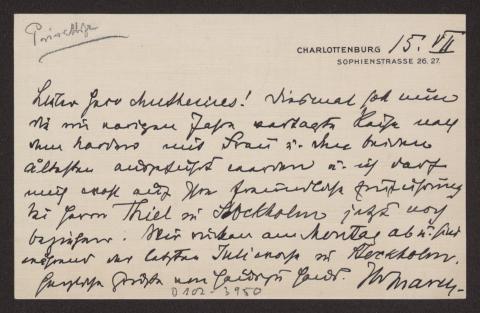 CHARLOTTENBURG 15. VII
SOPHIENSTRASSE 26. 27.
Lieber Herr Muthesius! Diesmal soll nun
die im vorigen Jahr vertagte Reise nach
dem Norden mit Frau u. den beiden
Ältesten ausgeführt werden u. ich darf
mich wohl auf Ihre freundliche Einführung
bei Herrn Thiel in Stockholm jetzt noch
beziehen. Wir rücken am Montag ab u. sind
während der letzten Juliwoche in Stockholm.
Herzliche Grüße von Haus zu Haus. Ihr March.
D 102-3980